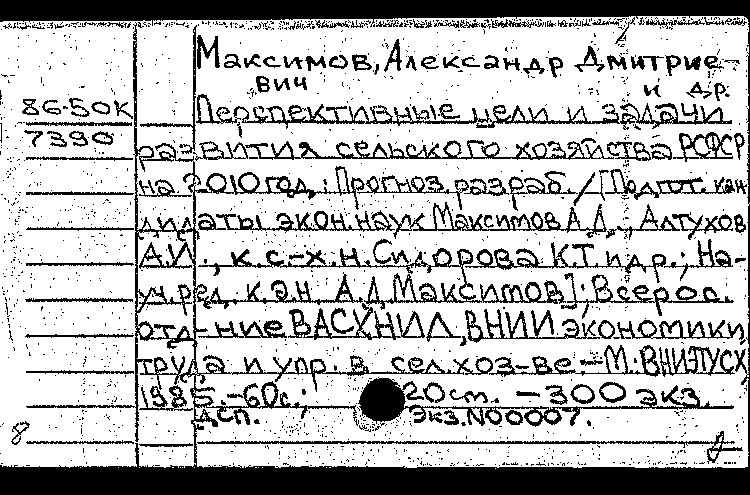 Максимов, Александр Дмитрие-
вич и др.
86-50К Перспективные цели и задачи
7390 развития сельского хозяйства РСФСР
на 2010 год.: Прогноз. разраб. / [Подгот. кан
дидаты экон. наук Максимов А.Д., Алтухов
А.И., к.с.-х.н. Сидорова К.Т. и др.; На-
уч. ред. к.э.н. А.Д. Максимов]; Всерос.
отд-ние ВАСХНИЛ, ВНИИ экономики,
труда и упр. в сел. хоз-ве. - М.: ВНИЭТУСХ,
1985. - 60 с.; 20 cm. - 300 экз.
ДСП. Экз. N00007.
8